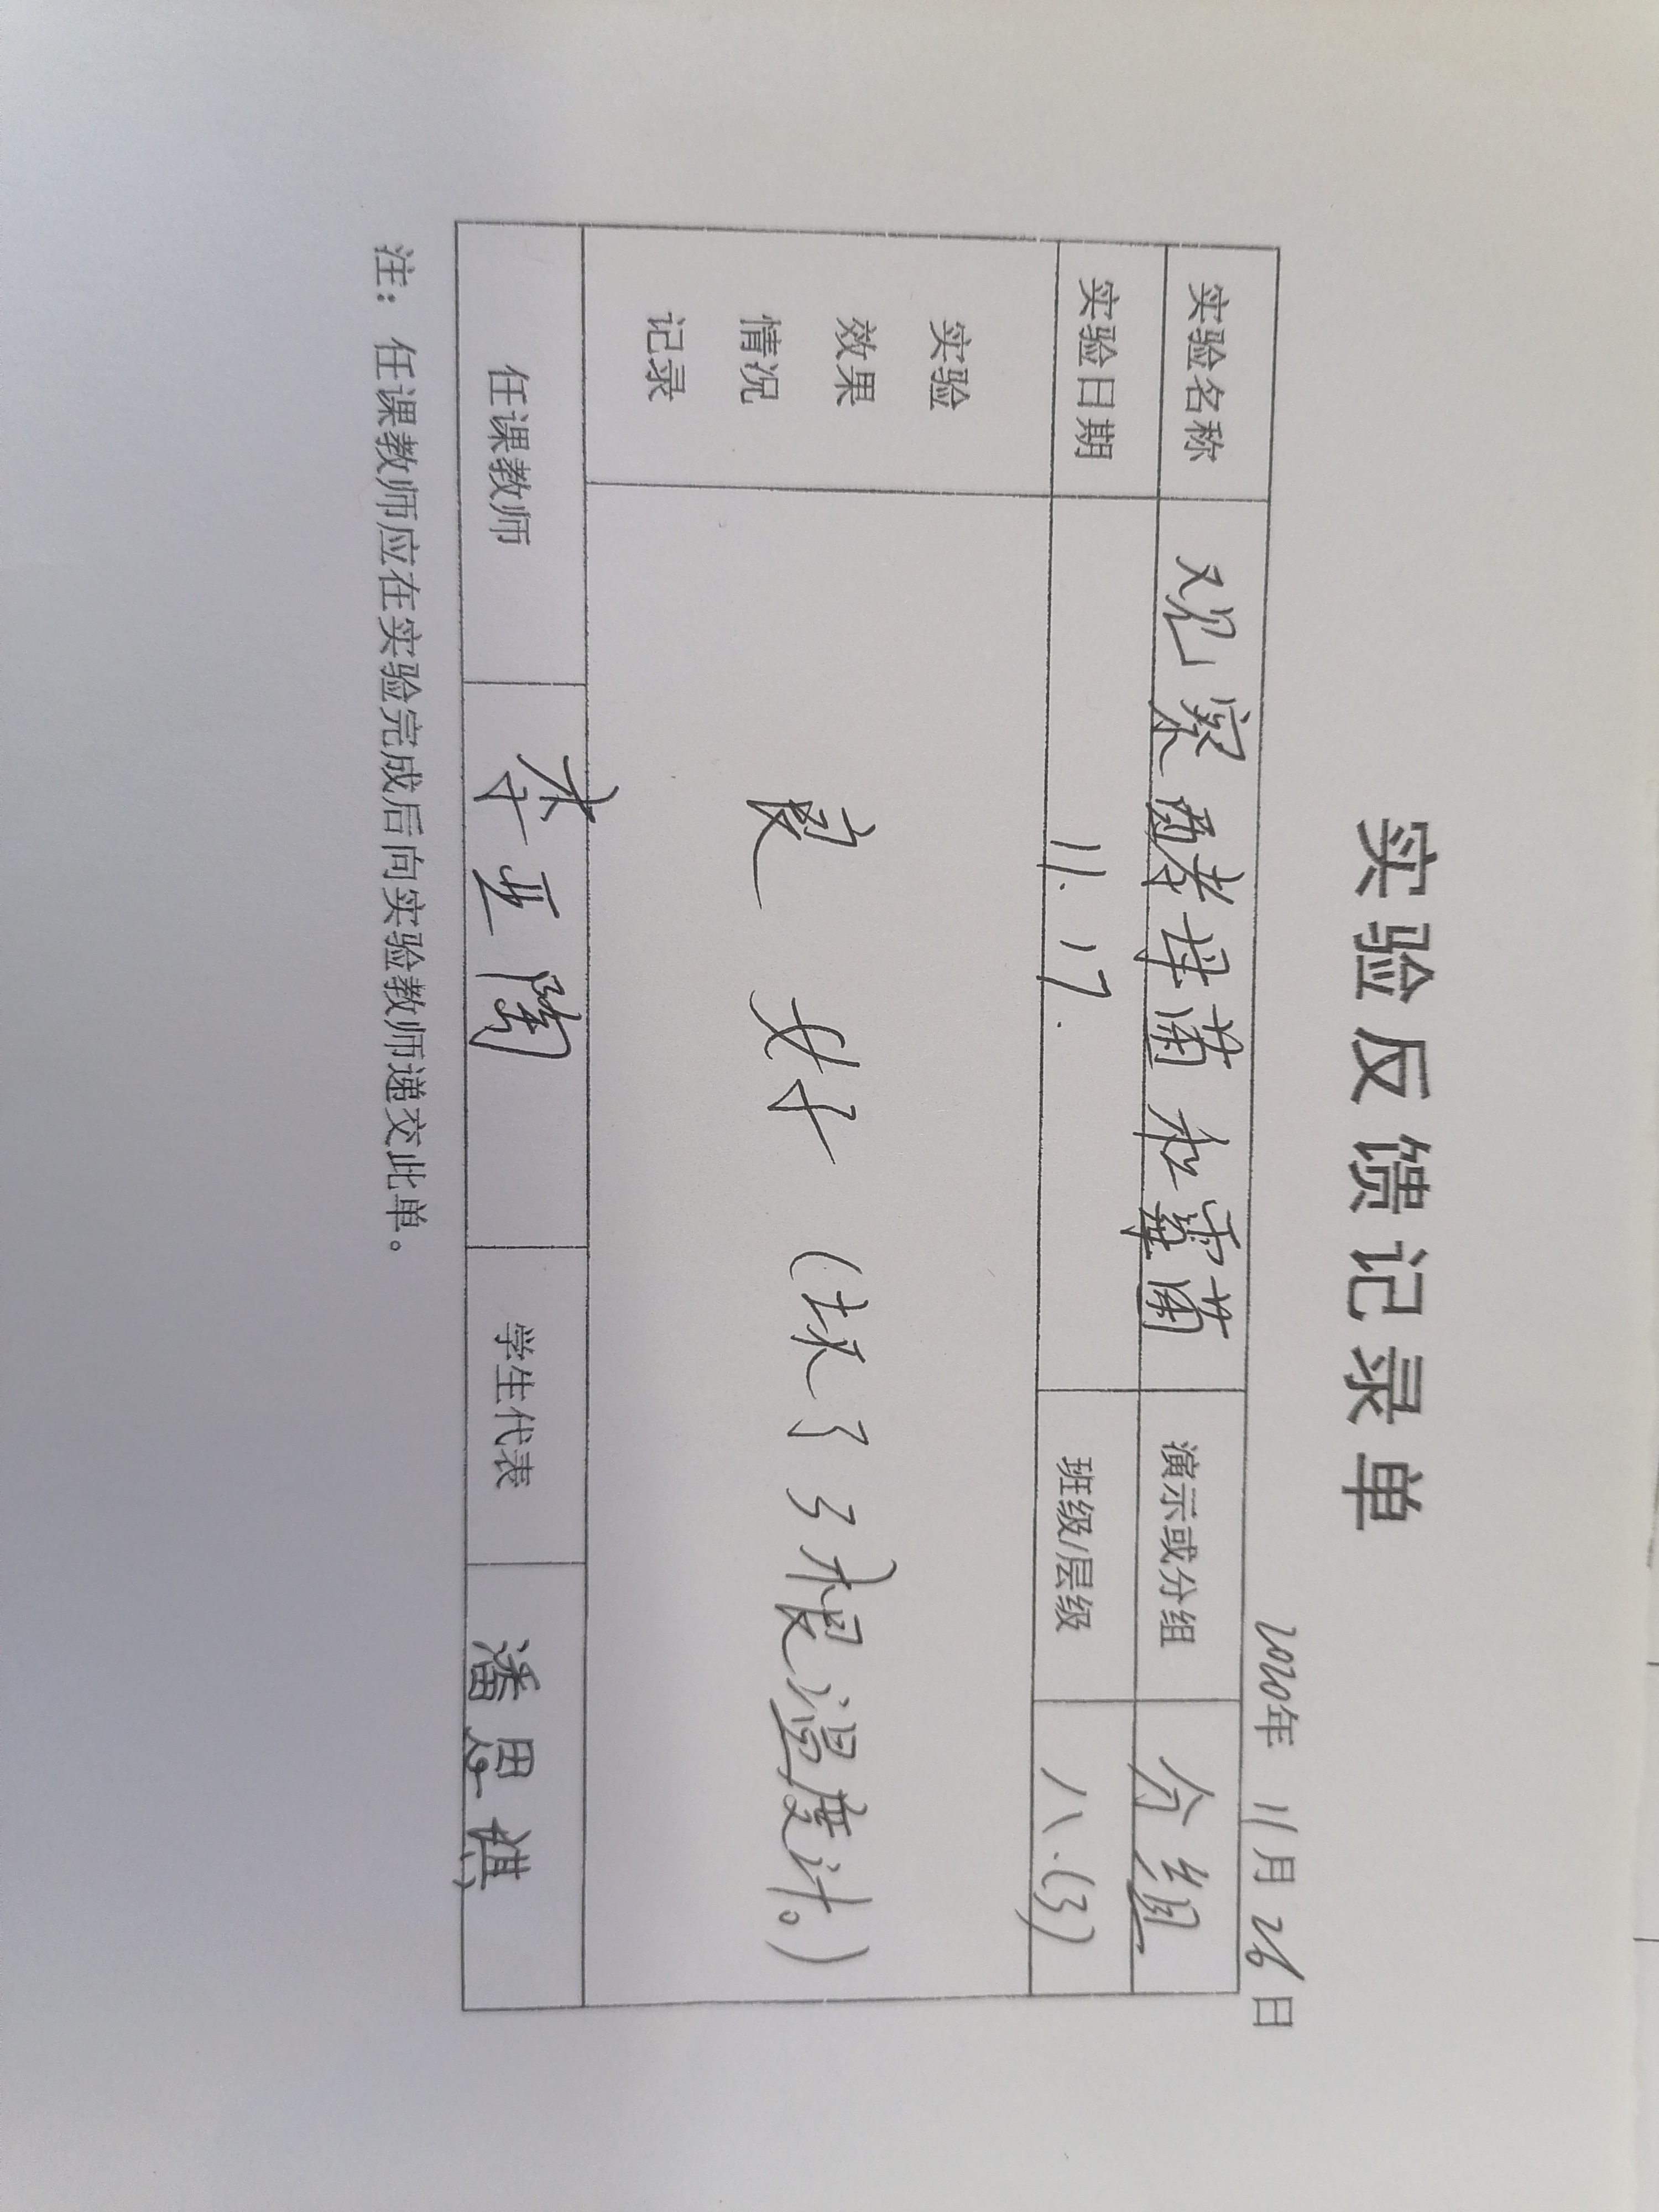 实验反馈记录单
2020年 11月 26日
实验名称 观察酵母菌和霉菌 演示或分组 分组
实验日期 11.17. 班级/层级 八.(3)
实验
效果
情况
记录
良好 (坏了3根温度计。)
任课教师 李亚 学生代表 潘思
注：任课教师应在实验完成后向实验教师递交此单。